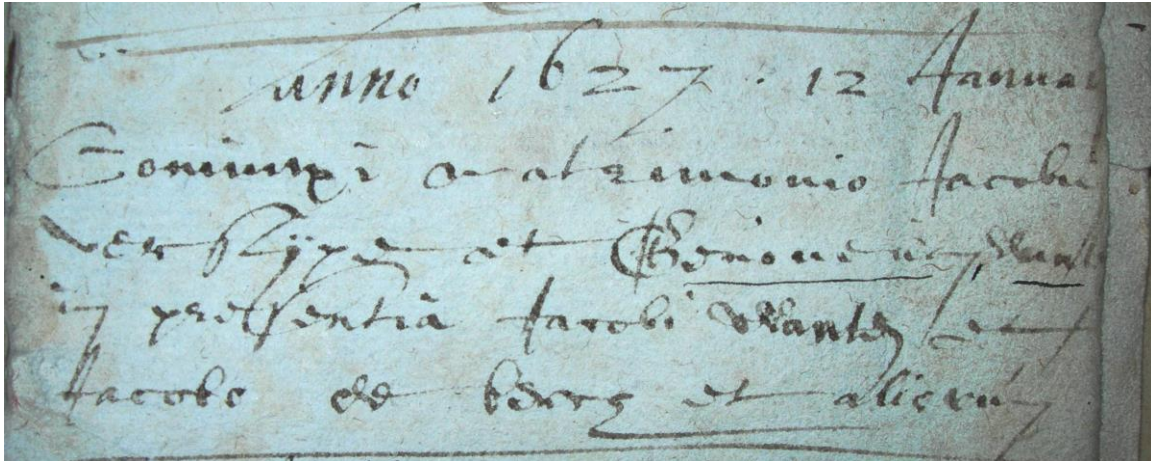 Anno 1627 . 12 Janua
Coniunxi matrimonio Jacobu
ver Rype et Genoueua
in presentia Jacobi Wanten et
Jacobo de berch et alioru